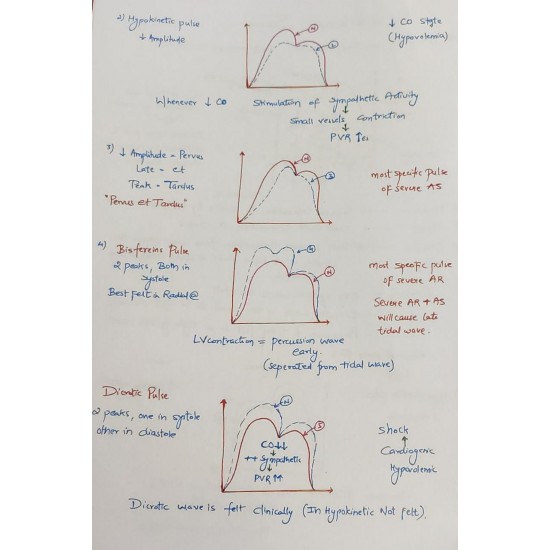 2) Hypokinetic pulse
↓ Amplitude
N
↓ CO state
(Hypovolemia)
Whenever ↓ CO
Stimulation of Sympathetic Activity
↓
Small vessels contriction
↓
PVR ↑es
3) ↓ Amplitude - Pervus
Late - et
Peak - Tardus
"Pervus et Tardus"
N
most specific pulse
of severe AS
4) Bisfereins Pulse
2 peaks, Both in
systole
Best felt in Radial
N
most specific pulse
of severe AR
Severe AR + AS
will cause late
tidal wave.
LV contraction = percussion wave
early.
(seperated from tidal wave)
Dicrotic Pulse
2 peaks, one in systole
other in diastole
N
S
CO↓↓
↓
++ Sympathetic
↓
PVR ↑↑
Shock
↑
Cardiogenic
Hypovolemic
Dicrotic wave is felt clinically (In Hypokinetic Not felt).